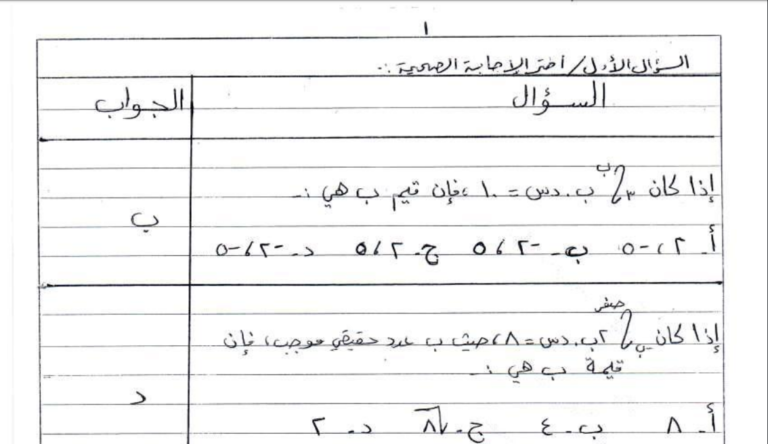 ١
السؤال الأول / أختر الإجابة الصحيحة :.
السؤال الجواب
إذا كان ∫٣^ب ب.دس = ١٠ ، فإن قيم ب هي :-
ب
أ. ٢ ، -٥ ب. -٢ ، ٥ ج. ٢ ، ٥ د. -٢ ، -٥
صفر
إذا كان ∫-ب ٢ب.دس = ٨ ، حيث ب عدد حقيقي موجب ، فإن
قيمة ب هي :-
د
أ. ٨ ب. ٤ ج. √٨ د. ٢